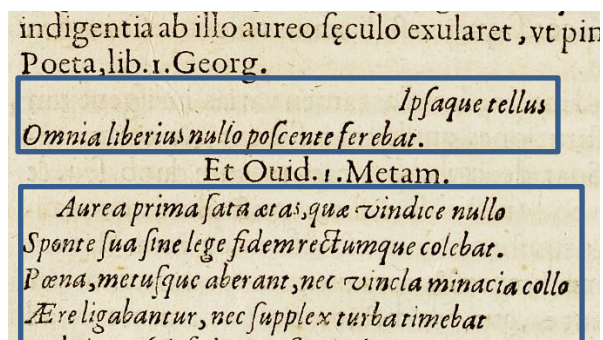 indigentia ab illo aureo sęculo exularet, vt pin
Poeta, lib. 1. Georg.
Ipſaque tellus
Omnia liberius nullo poſcente ferebat.
Et Ouid. 1. Metam.
Aurea prima ſata ætas, quæ vindice nullo
Sponte ſua ſine lege fidem rectumque colebat.
Pœna, metuſque aberant, nec vincla minacia collo
Ære ligabantur, nec ſupplex turba timebat